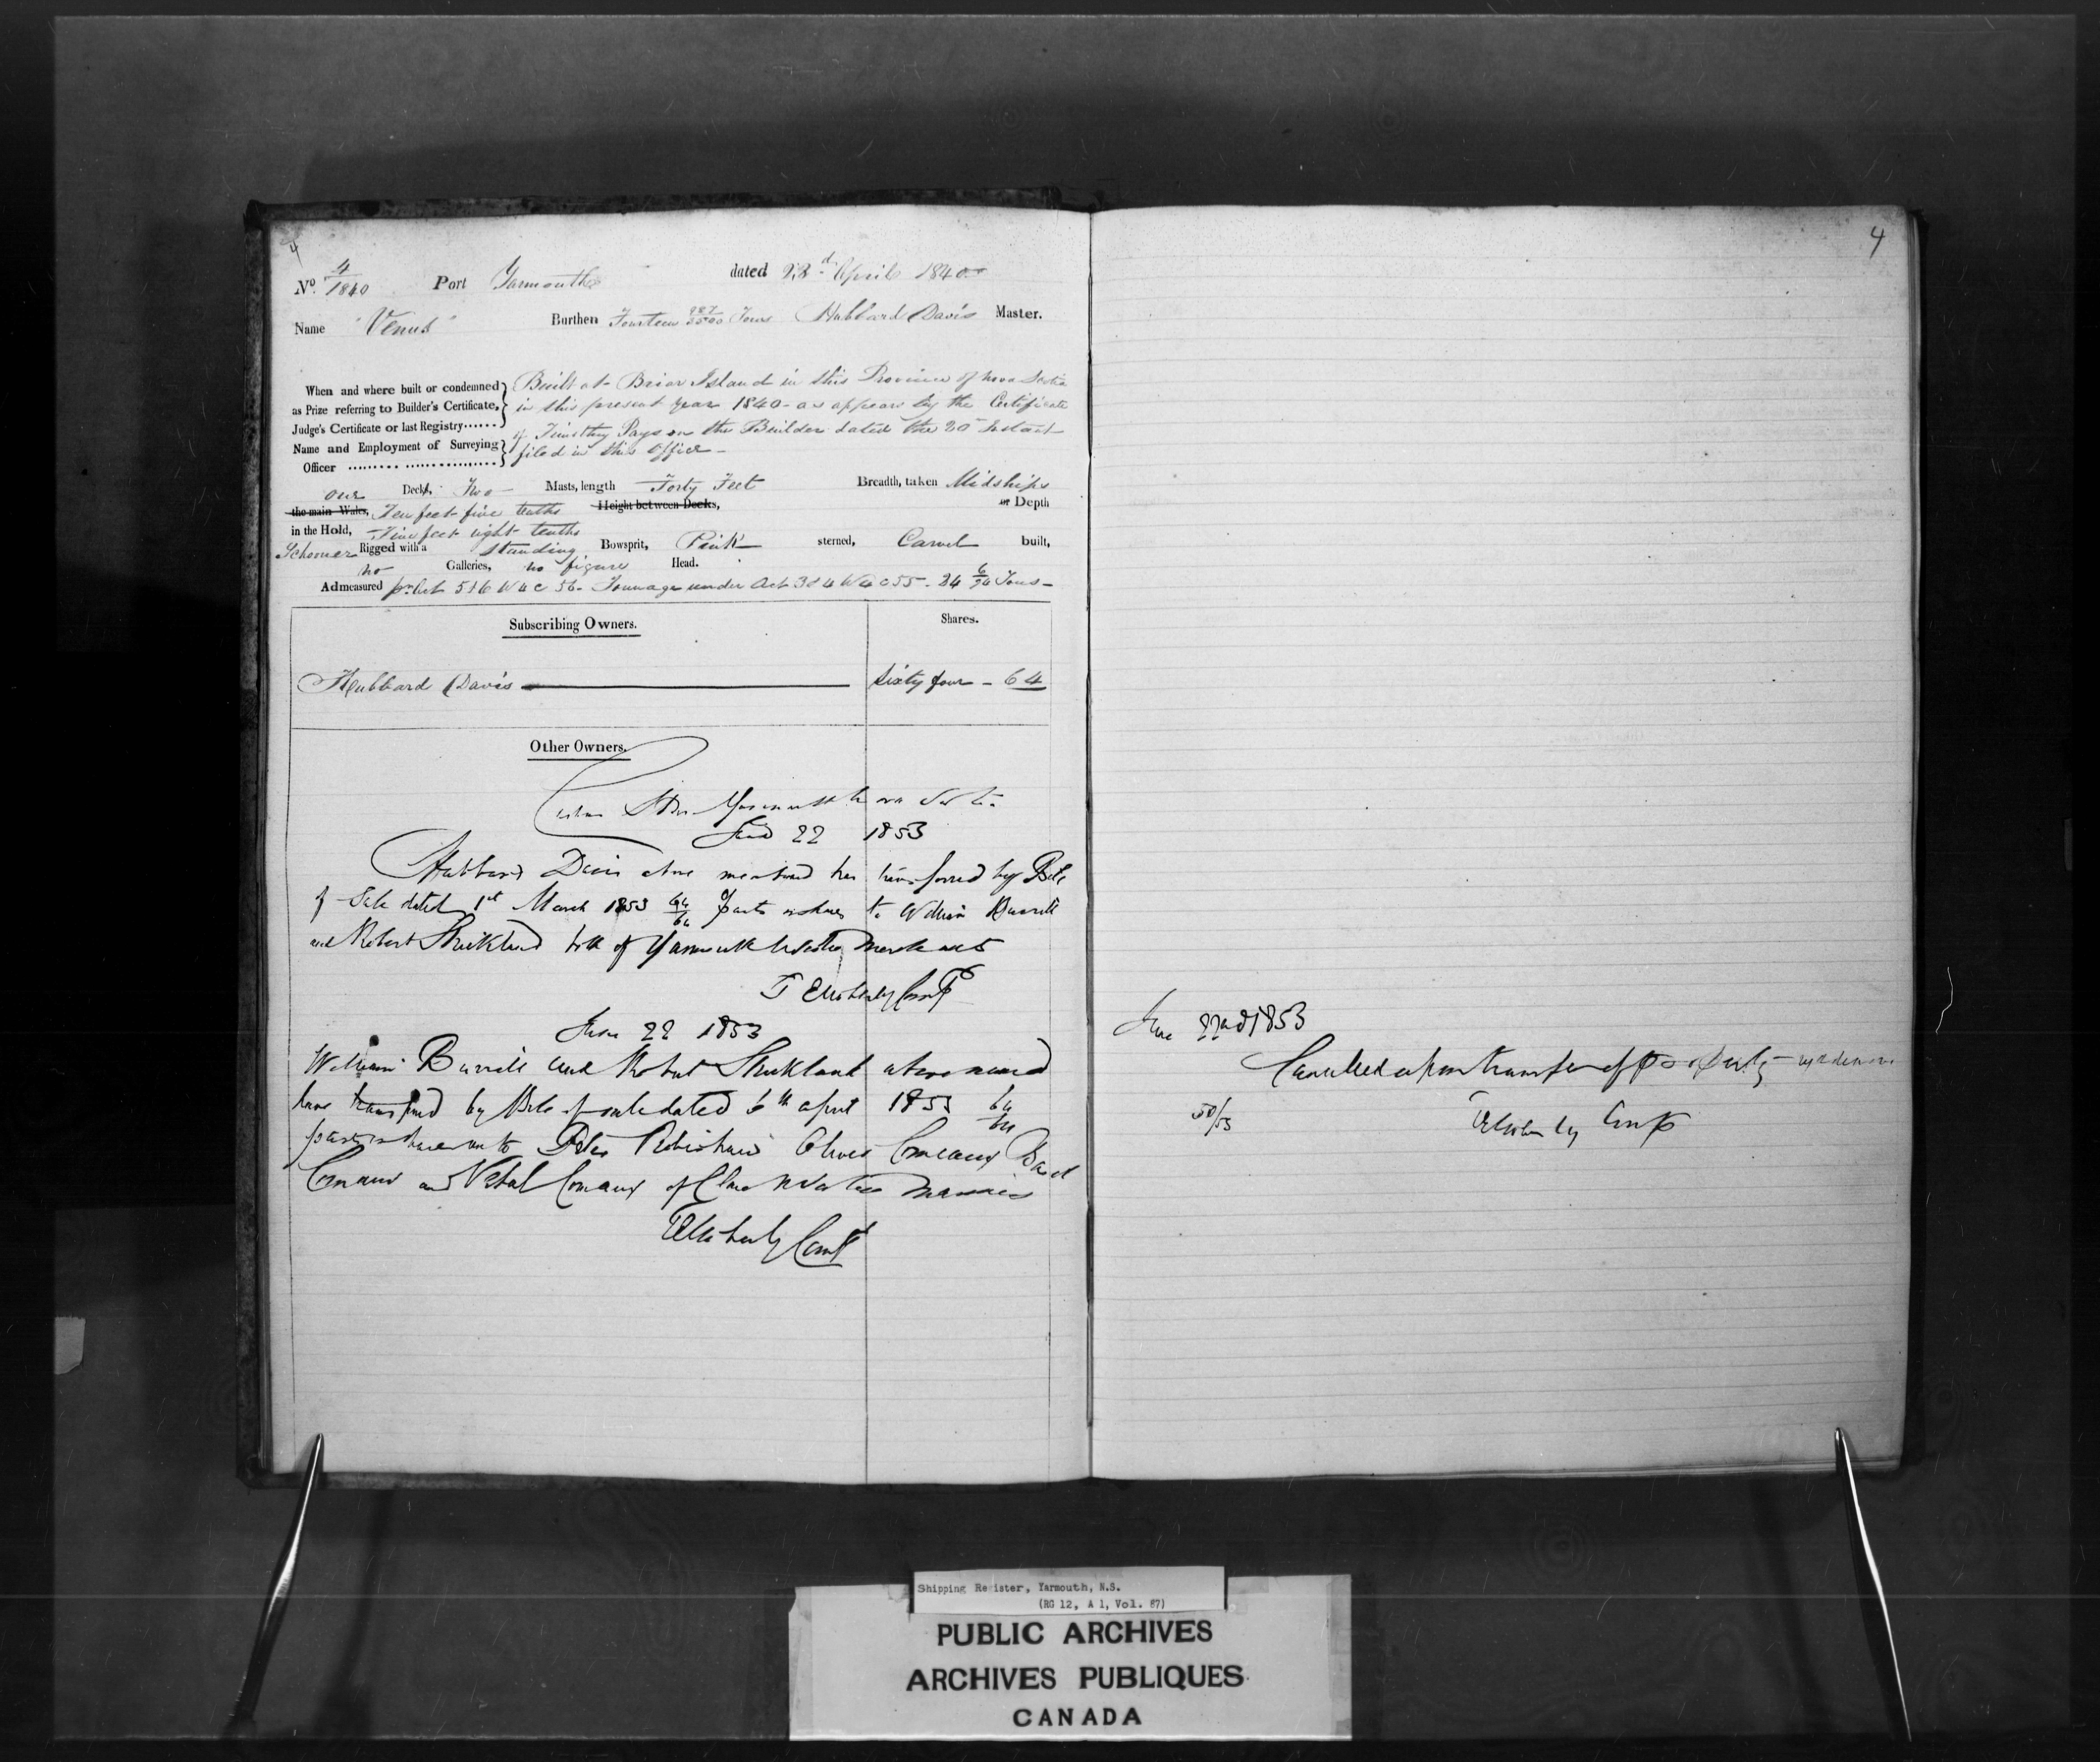 4
No. 4/1840 Port Yarmouth dated 22d April 1840
Name "Venus" Burthen Fourteen Tons Hubbard Davis Master.
When and where built or condemned
as Prize referring to Builder's Certificate,
Judge's Certificate or last Registry......
Name and Employment of Surveying
Officer ......... ...............
Built at Briar Island in this Province of Nova Scotia
in this present year 1840 - as appears by the Certificate
of Timothy Payson the Builder dated the 20 Instant
filed in this Office -
one Deck, Two Masts, length Forty Feet Breadth, taken Midships
the main Wales, Ten feet five tenths Height between Decks, or Depth
in the Hold, Five feet eight tenths
Schooner Rigged with a standing Bowsprit, Pink sterned, Carvel built,
no Galleries, no figure Head.
Admeasured pr. Act 5 & 6 W 4 C 56. Tonnage under Act 3 & 4 W 4 C 55 - 24 Tons -
Subscribing Owners. Shares.
Hubbard Davis Sixty four - 64
Other Owners.
Yarmouth
22 1853
Hubbard Davis above mentioned has transferred by Bill
of Sale dated 1st March 1853 64/64 parts or shares to William Burrell
and Robert Strickland both of Yarmouth Merchants
June 22 1853
William Burrell and Robert Strickland above named
have transferred by Bill of sale dated 6th April 1853 64/64
parts or shares to Comeau
Comeau and Vital Comeau of Clare
4
June 22nd 1853
Cancelled upon transfer of
50/53
Shipping Register, Yarmouth, N.S.
(RG 12, A 1, Vol. 87)
PUBLIC ARCHIVES
ARCHIVES PUBLIQUES
CANADA